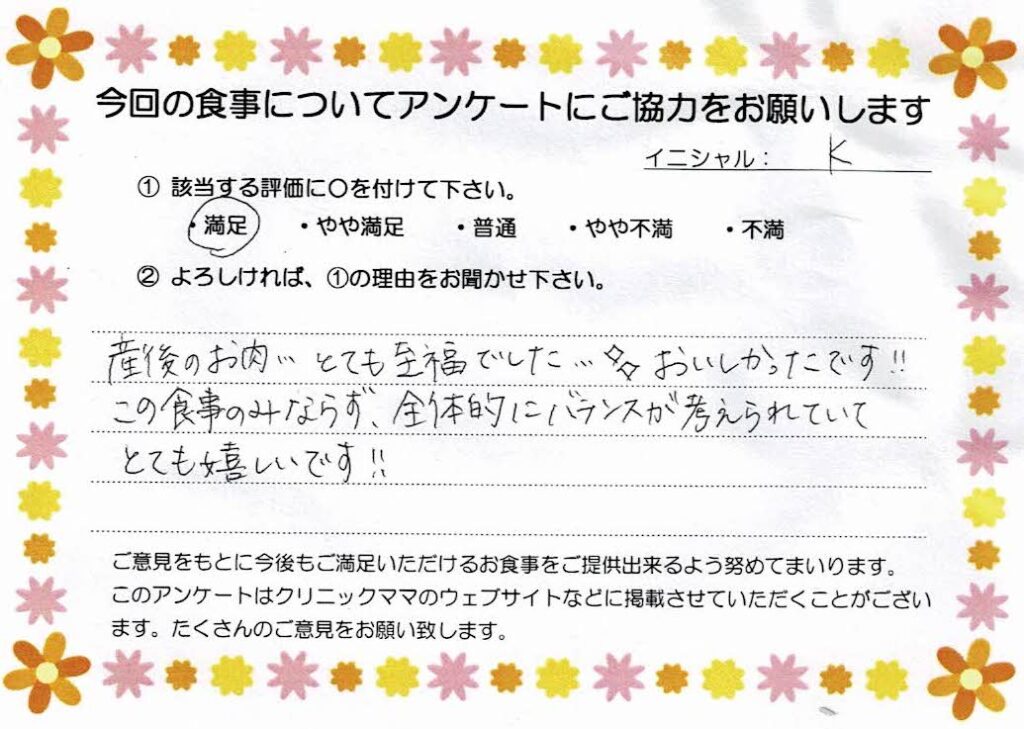 今回の食事についてアンケートにご協力をお願いします
イニシャル： K
① 該当する評価に〇を付けて下さい。
・満足 ・やや満足 ・普通 ・やや不満 ・不満
② よろしければ、①の理由をお聞かせ下さい。
産後のお肉… とても至福でした… おいしかったです!!
この食事のみならず、全体的にバランスが考えられていて
とても嬉しいです!!
ご意見をもとに今後もご満足いただけるお食事をご提供出来るよう努めてまいります。
このアンケートはクリニックママのウェブサイトなどに掲載させていただくことがござい
ます。たくさんのご意見をお願い致します。